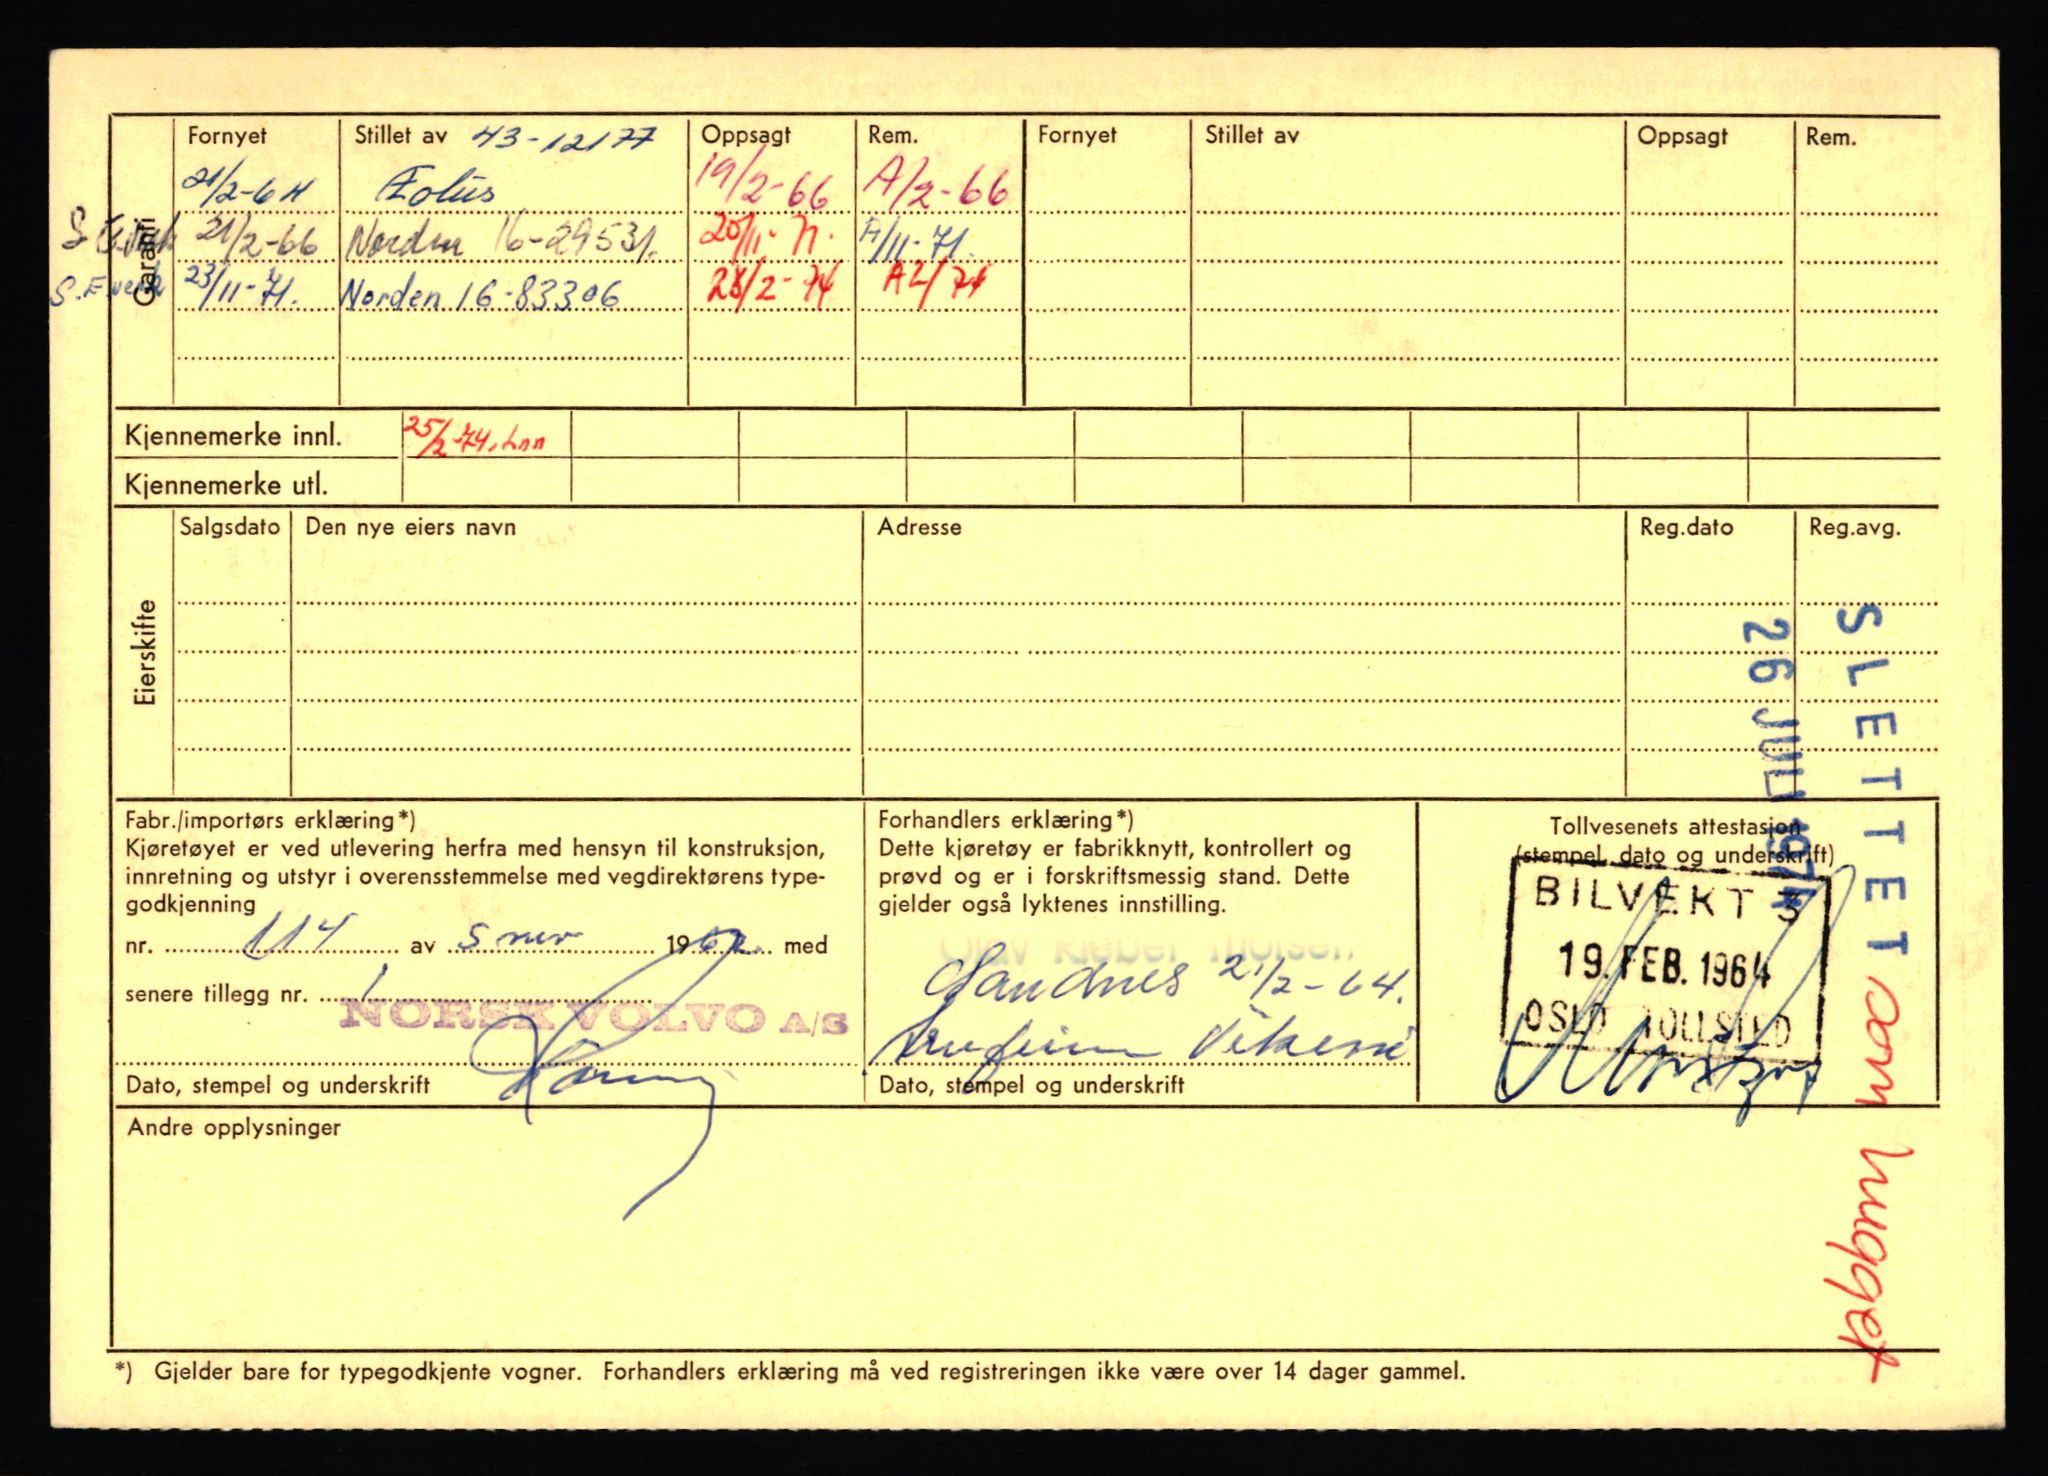 Garanti
Fornyet Stillet av 43-12177 Oppsagt Rem. Fornyet Stillet av Oppsagt Rem.
21/2-64 Æolus 19/2-66 A/2-66
21/2-66 Norden 16-29531. 20/11-71. A/11-71.
23/11-71. Norden 16-83306 28/2-74 A2/74
Kjennemerke innl. 25/2-74.
Kjennemerke utl.
Eierskifte
Salgsdato Den nye eiers navn Adresse Reg.dato Reg.avg.
SLETTET som hugget
26 JULI 1974
Fabr./importørs erklæring*)
Kjøretøyet er ved utlevering herfra med hensyn til konstruksjon,
innretning og utstyr i overensstemmelse med vegdirektørens type-
godkjenning
nr. 114 av 5 nov 1962 med
senere tillegg nr. 1
NORSK VOLVO A/S
Dato, stempel og underskrift
Forhandlers erklæring*)
Dette kjøretøy er fabrikknytt, kontrollert og
prøvd og er i forskriftsmessig stand. Dette
gjelder også lyktenes innstilling.
Olav Kleber
Sandnes 21/2-64.
Dato, stempel og underskrift
Tollvesenets attestasjon
(stempel, dato og underskrift)
BILVEKT 3
19. FEB. 1964
OSLO TOLLSTED
Andre opplysninger
*) Gjelder bare for typegodkjente vogner. Forhandlers erklæring må ved registreringen ikke være over 14 dager gammel.